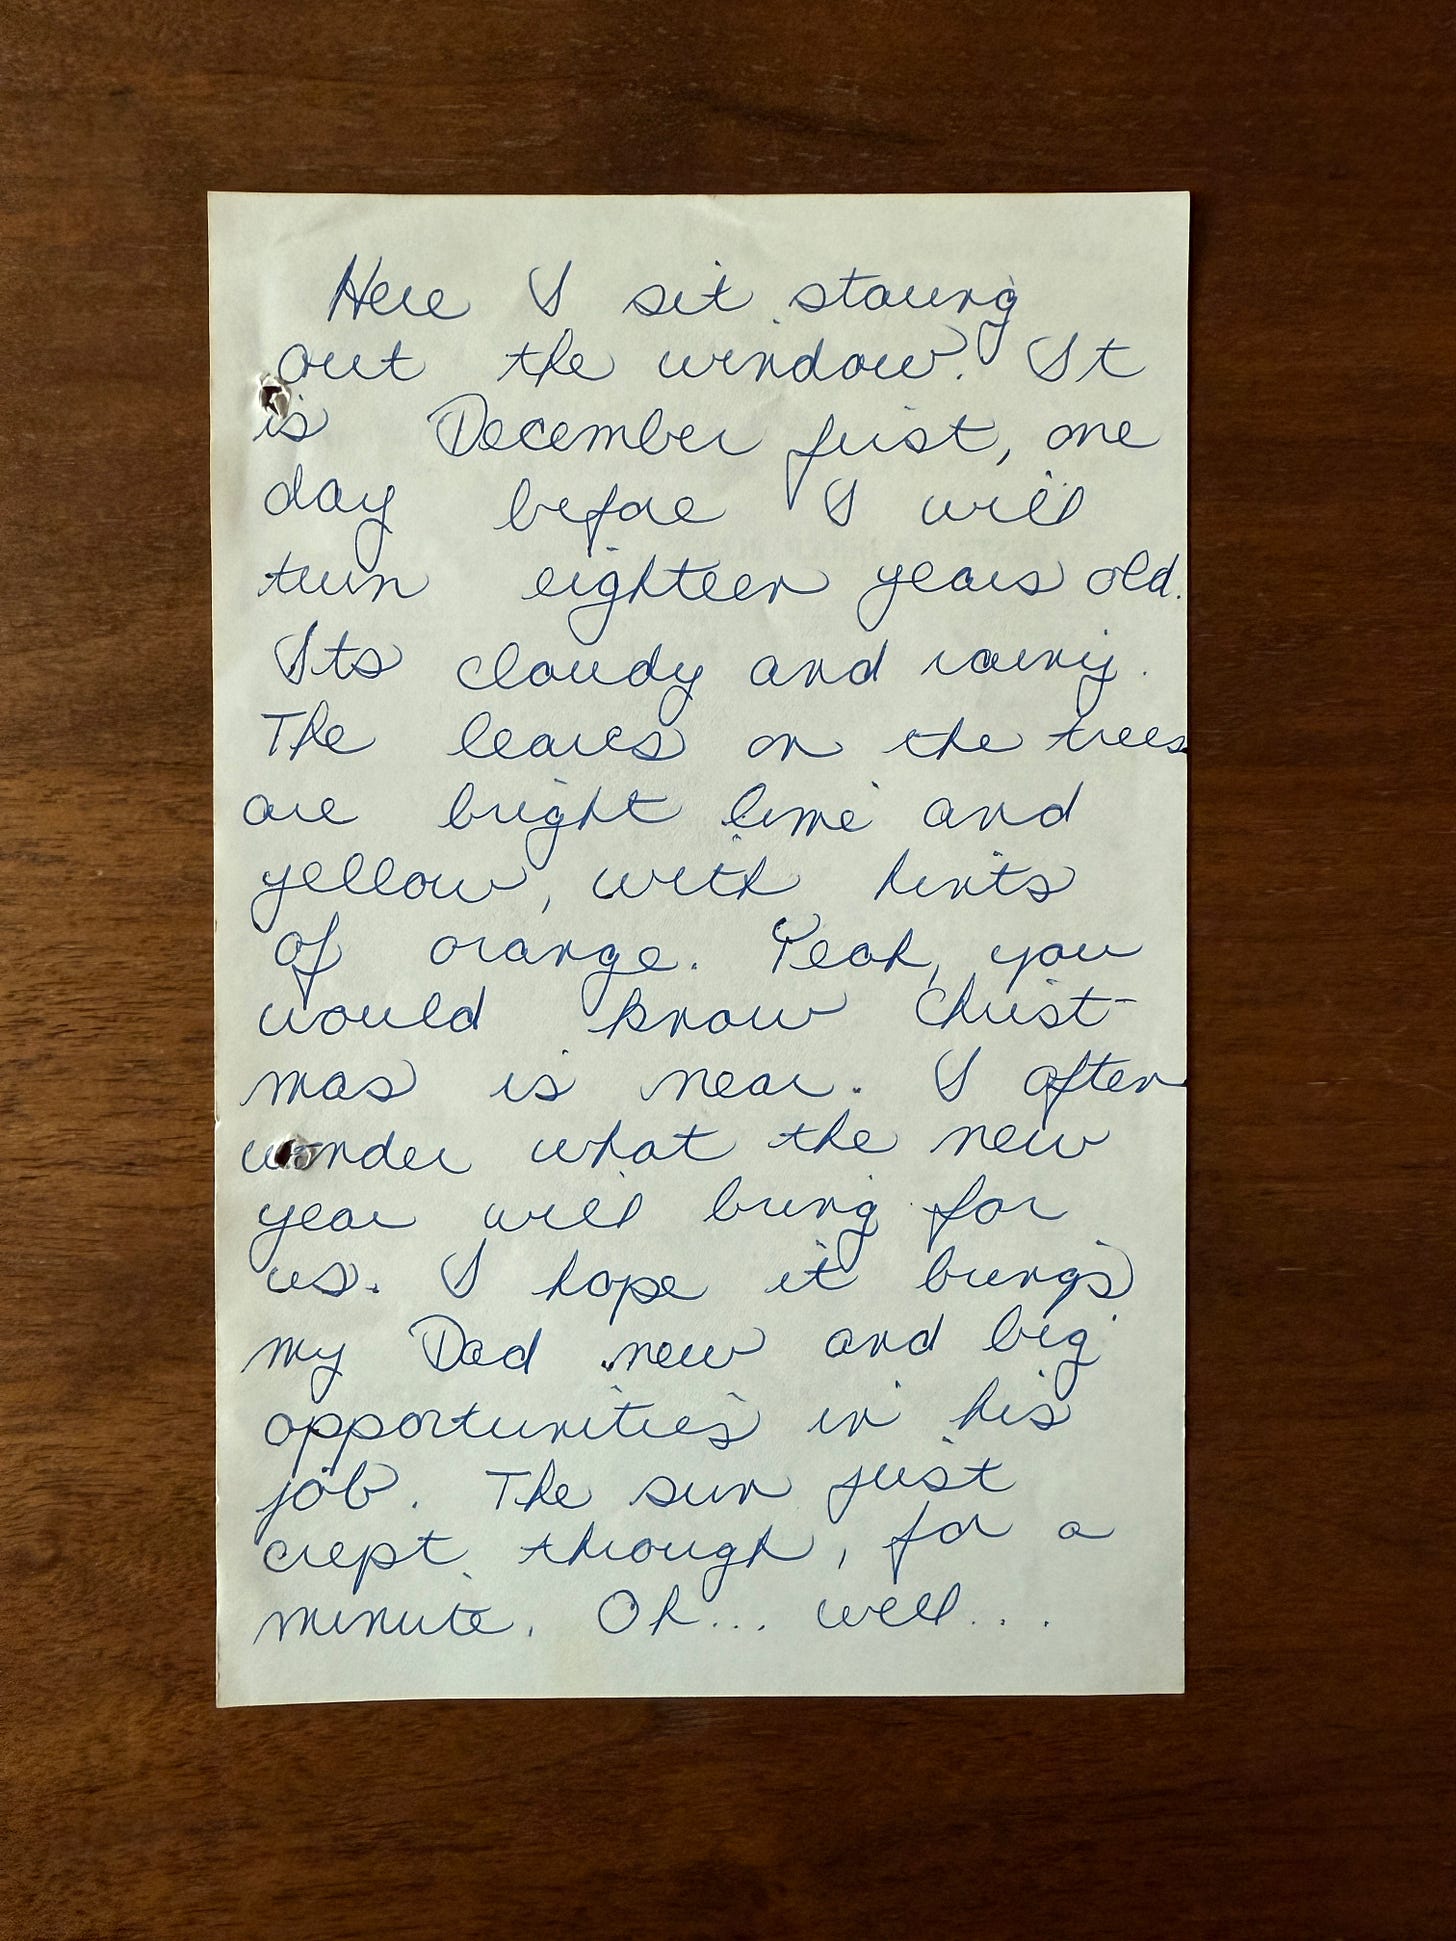 Here I sit staring
out the window. It
is December first, one
day before I will
turn eighteen years old.
Its cloudy and rainy.
The leaves on the trees
are bright lime and
yellow, with hints
of orange. Yeah, you
would know Christ-
mas is near. I often
wonder what the new
year will bring for
us. I hope it brings
my Dad new and big
opportunities in his
job. The sun just
crept through, for a
minute. Oh... well...